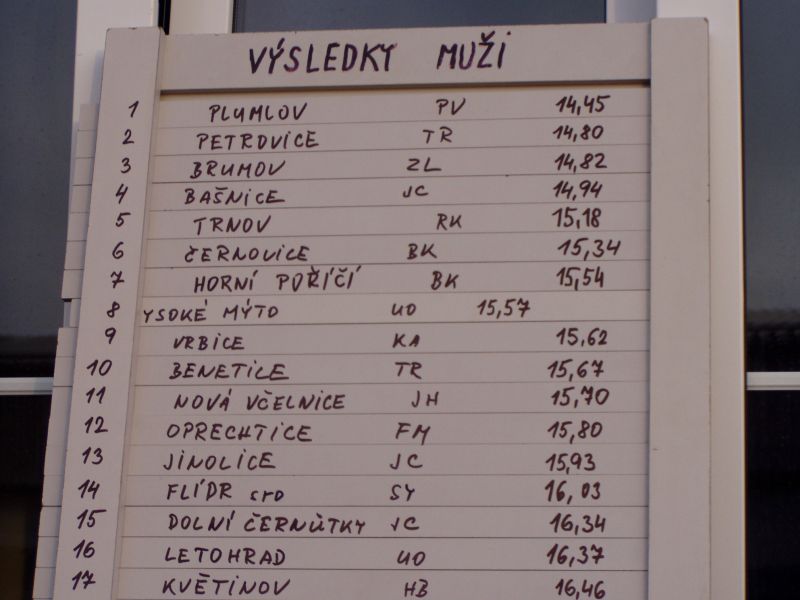 VÝSLEDKY MUŽI
1 PLUMLOV PV 14,45
2 PETROVICE TR 14,80
3 BRUMOV ZL 14,82
4 BAŠNICE JC 14,94
5 TRNOV RK 15,18
6 ČERNOVICE BK 15,34
7 HORNÍ POŘÍČÍ BK 15,54
8 YSOKÉ MÝTO UO 15,57
9 VRBICE KA 15,62
10 BENETICE TR 15,67
11 NOVÁ VČELNICE JH 15,70
12 OPRECHTICE FM 15,80
13 JINOLICE JC 15,93
14 FLÍDR sro SY 16,03
15 DOLNÍ ČERNŮTKY JC 16,34
16 LETOHRAD UO 16,37
17 KVĚTINOV HB 16,46